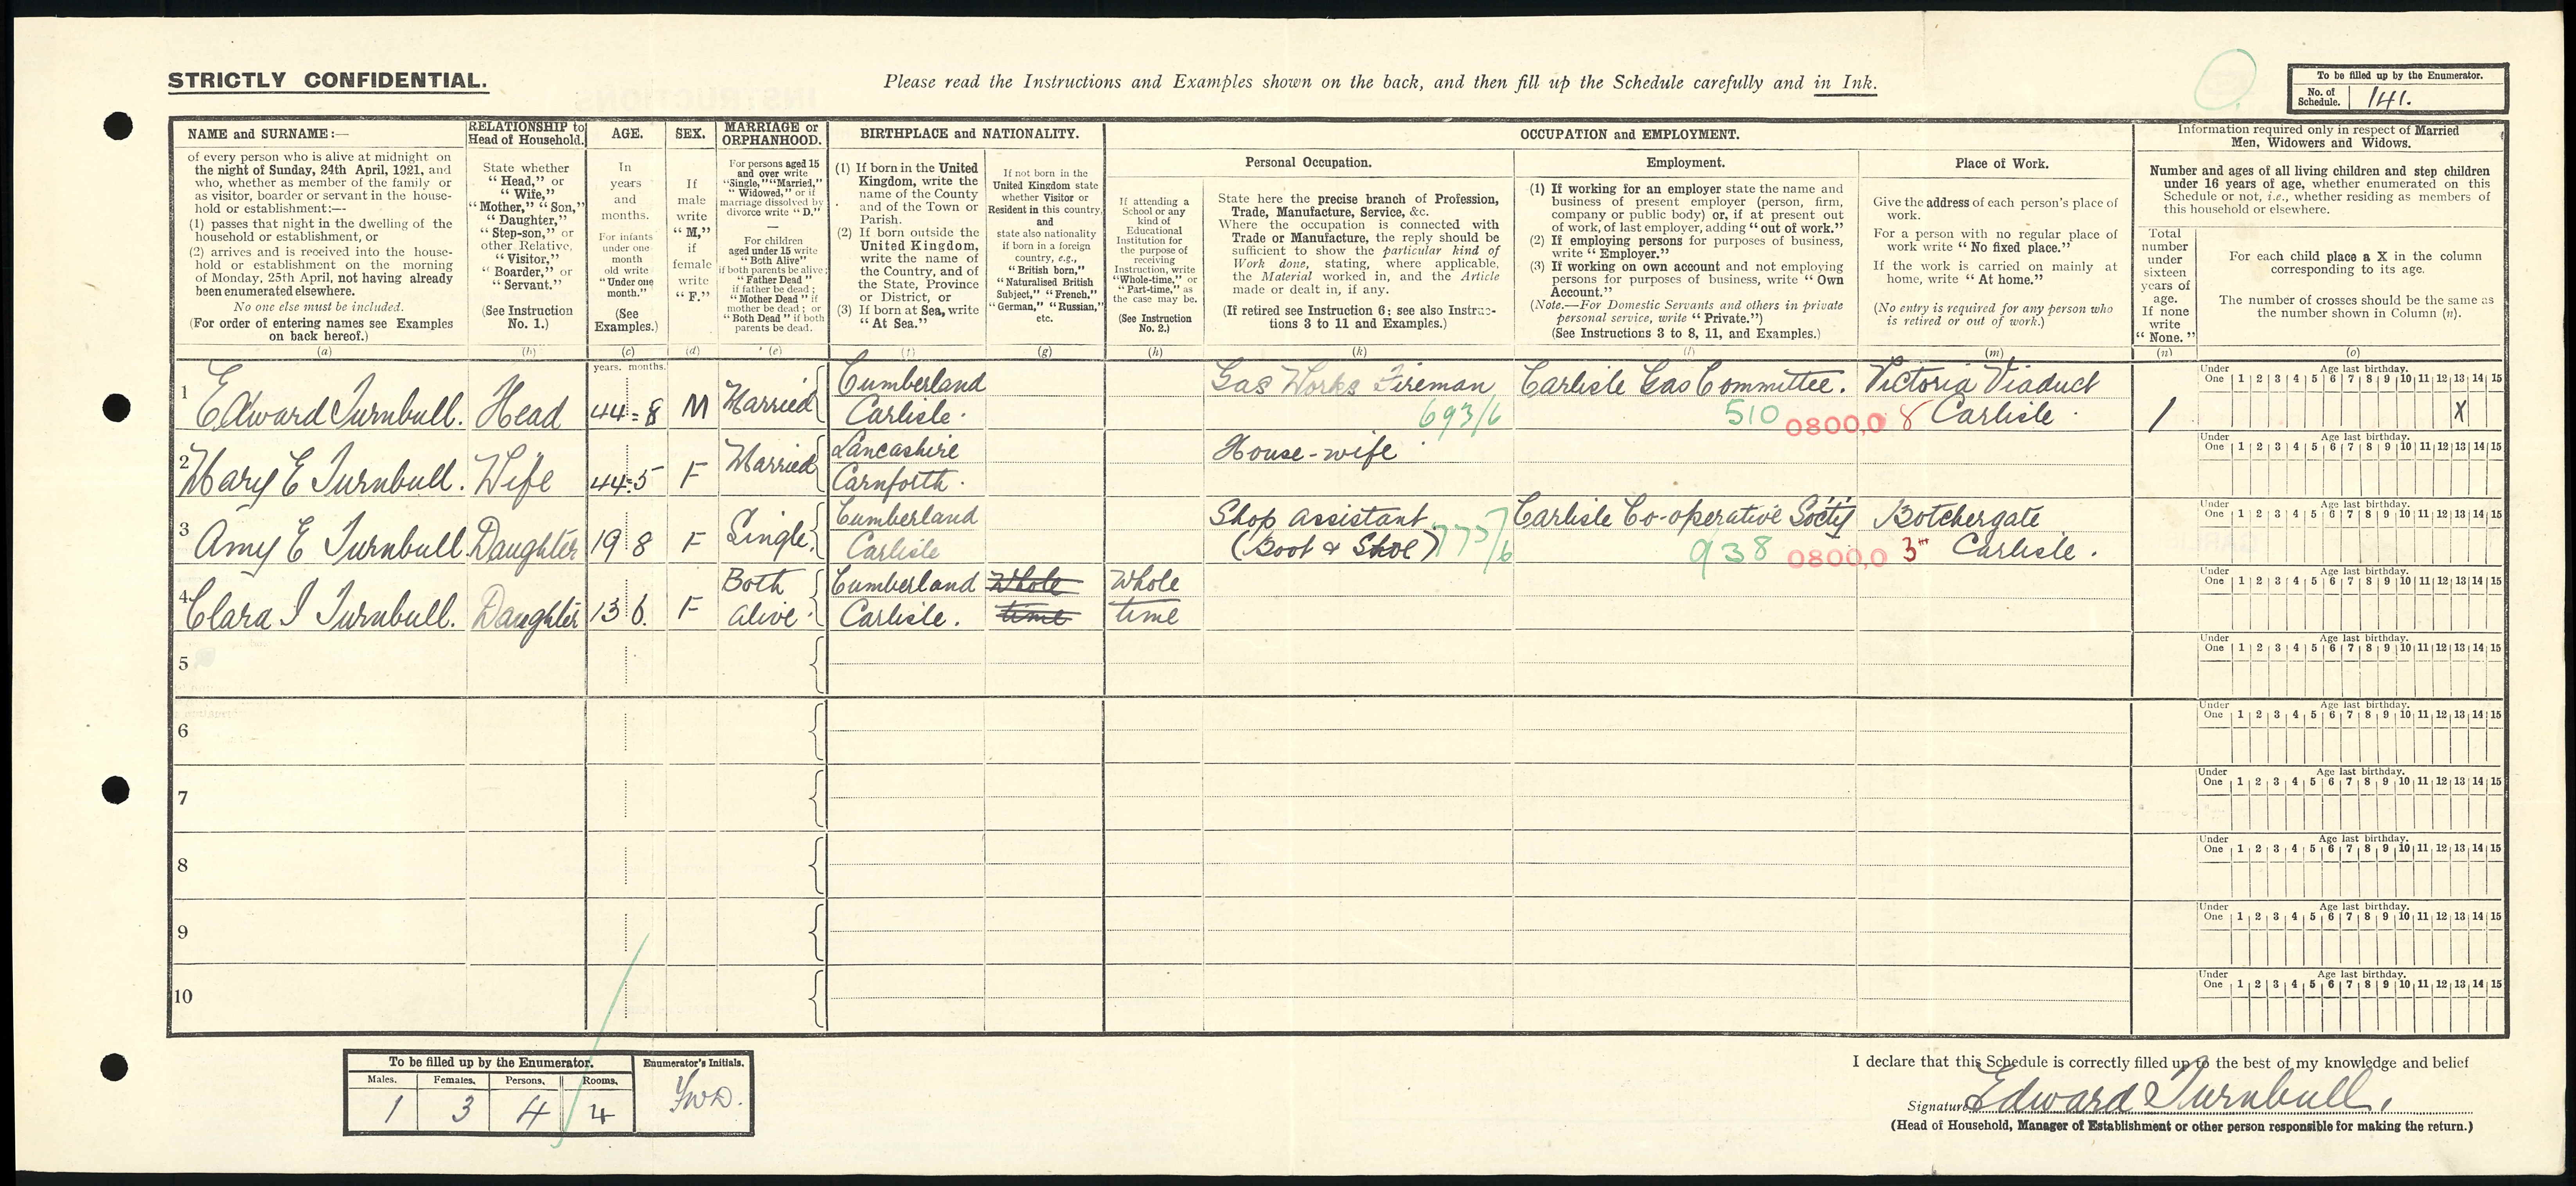 STRICTLY CONFIDENTIAL.
Please read the Instructions and Examples shown on the back, and then fill up the Schedule carefully and in Ink.
To be filled up by the Enumerator.
No. of Schedule. 141.
NAME and SURNAME:—
of every person who is alive at midnight on
the night of Sunday, 24th April, 1921, and
who, whether as member of the family or
as visitor, boarder or servant in the house-
hold or establishment:—
(1) passes that night in the dwelling of the
household or establishment, or
(2) arrives and is received into the house-
hold or establishment on the morning
of Monday, 25th April, not having already
been enumerated elsewhere.
No one else must be included.
(For order of entering names see Examples
on back hereof.)
(a)
RELATIONSHIP to
Head of Household.
State whether
"Head," or
"Wife,"
"Mother," "Son,"
"Daughter,"
"Step-son," or
other Relative,
"Visitor,"
"Boarder," or
"Servant."
(See Instruction
No. 1.)
(b)
AGE.
In
years
and
months.
For infants
under one
month
old write
"Under one
month."
(See
Examples.)
(c)
SEX.
If
male
write
"M,"
if
female
write
"F."
(d)
MARRIAGE or
ORPHANHOOD.
For persons aged 15
and over write
"Single," "Married,"
"Widowed," or if
marriage dissolved by
divorce write "D."
—
For children
aged under 15 write
"Both Alive"
if both parents be alive;
"Father Dead"
if father be dead;
"Mother Dead" if
mother be dead; or
"Both Dead" if both
parents be dead.
(e)
BIRTHPLACE and NATIONALITY.
(1) If born in the United
Kingdom, write the
name of the County
and of the Town or
Parish.
(2) If born outside the
United Kingdom,
write the name of
the Country, and of
the State, Province
or District, or
(3) If born at Sea, write
"At Sea."
(f)
If not born in the
United Kingdom state
whether Visitor or
Resident in this country,
and
state also nationality
if born in a foreign
country, e.g.,
"British born,"
"Naturalised British
Subject," "French,"
"German," "Russian,"
etc.
(g)
OCCUPATION and EMPLOYMENT.
If attending a
School or any
kind of
Educational
Institution for
the purpose of
receiving
Instruction, write
"Whole-time," or
"Part-time," as
the case may be.
(See Instruction
No. 2.)
(h)
Personal Occupation.
State here the precise branch of Profession,
Trade, Manufacture, Service, &c.
Where the occupation is connected with
Trade or Manufacture, the reply should be
sufficient to show the particular kind of
Work done, stating, where applicable,
the Material worked in, and the Article
made or dealt in, if any.
(If retired see Instruction 6; see also Instruc-
tions 3 to 11 and Examples.)
(k)
Employment.
(1) If working for an employer state the name and
business of present employer (person, firm,
company or public body) or, if at present out
of work, of last employer, adding "out of work."
(2) If employing persons for purposes of business,
write "Employer."
(3) If working on own account and not employing
persons for purposes of business, write "Own
Account."
(Note.—For Domestic Servants and others in private
personal service, write "Private.")
(See Instructions 3 to 8, 11, and Examples.)
(l)
Place of Work.
Give the address of each person's place of
work.
For a person with no regular place of
work write "No fixed place."
If the work is carried on mainly at
home, write "At home."
(No entry is required for any person who
is retired or out of work.)
(m)
Information required only in respect of Married
Men, Widowers and Widows.
Number and ages of all living children and step children
under 16 years of age, whether enumerated on this
Schedule or not, i.e., whether residing as members of
this household or elsewhere.
Total
number
under
sixteen
years of
age.
If none
write
"None."
(n)
For each child place a X in the column
corresponding to its age.
The number of crosses should be the same as
the number shown in Column (n).
(o)
years. months.
1 Edward Turnbull. Head 44=8 M Married Cumberland Carlisle. Gas Works Fireman 693/6 Carlisle Gas Committee. 510 0800,0 8 Victoria Viaduct Carlisle. 1
Under One Age last birthday. 1 2 3 4 5 6 7 8 9 10 11 12 13 14 15
X
2 Mary E Turnbull. Wife 44=5 F Married Lancashire Carnforth. House-wife
Under One Age last birthday. 1 2 3 4 5 6 7 8 9 10 11 12 13 14 15
3 Amy E Turnbull Daughter 19 8 F Single. Cumberland Carlisle Shop assistant (Boot & Shoe) 775/6 Carlisle Co-operative Socty 938 0800,0 3 Botchergate Carlisle.
Under One Age last birthday. 1 2 3 4 5 6 7 8 9 10 11 12 13 14 15
4 Clara I Turnbull. Daughter 13 6. F Both alive. Cumberland Carlisle. Whole time Whole time
Under One Age last birthday. 1 2 3 4 5 6 7 8 9 10 11 12 13 14 15
5
Under One Age last birthday. 1 2 3 4 5 6 7 8 9 10 11 12 13 14 15
6
Under One Age last birthday. 1 2 3 4 5 6 7 8 9 10 11 12 13 14 15
7
Under One Age last birthday. 1 2 3 4 5 6 7 8 9 10 11 12 13 14 15
8
Under One Age last birthday. 1 2 3 4 5 6 7 8 9 10 11 12 13 14 15
9
Under One Age last birthday. 1 2 3 4 5 6 7 8 9 10 11 12 13 14 15
10
Under One Age last birthday. 1 2 3 4 5 6 7 8 9 10 11 12 13 14 15
To be filled up by the Enumerator.
Males. Females. Persons. Rooms.
1 3 4 4
Enumerator's Initials.
I declare that this Schedule is correctly filled up to the best of my knowledge and belief
Signature Edward Turnbull.
(Head of Household, Manager of Establishment or other person responsible for making the return.)